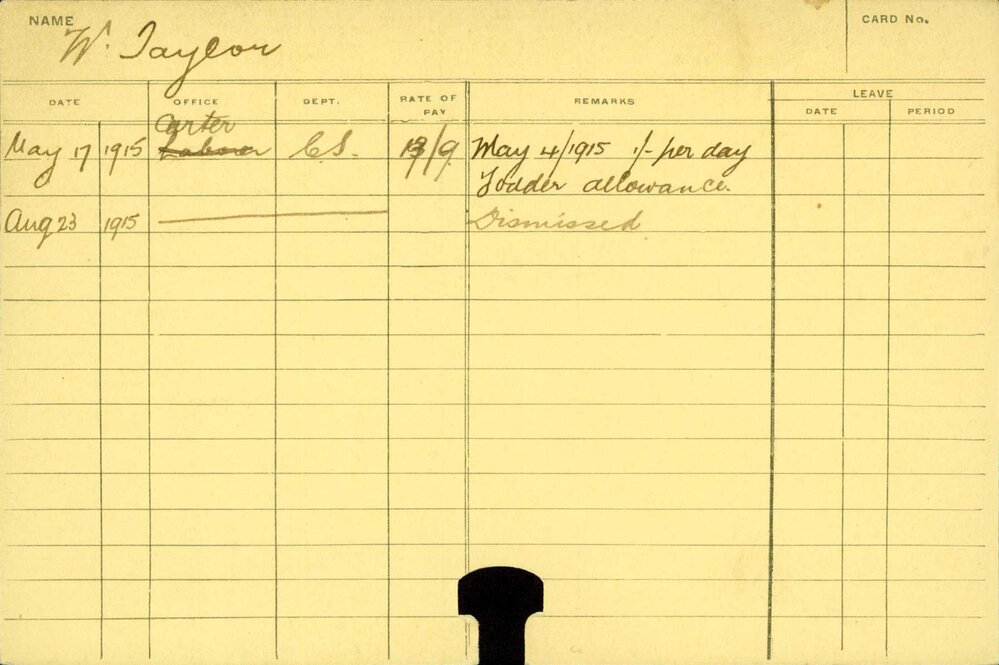 NAME W. Taylor CARD No.
DATE OFFICE DEPT. RATE OF PAY REMARKS LEAVE
DATE PERIOD
Carter
May 17 1915 Laborer C.S. 13/9 May 4/1915 1/- per day
Fodder allowance.
Aug 23 1915 Dismissed